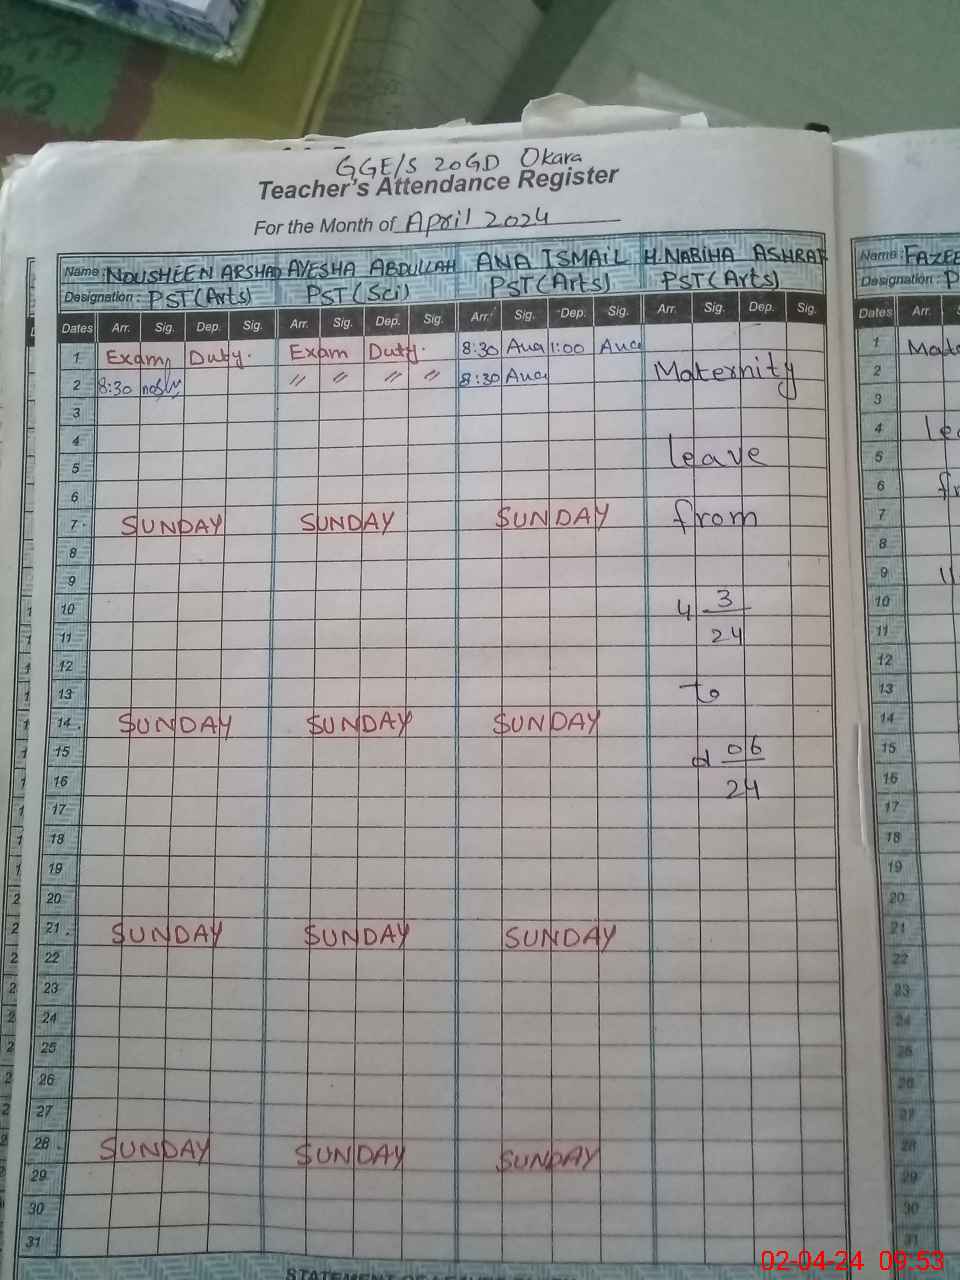 GGE/S 20GD Okara
Teacher's Attendance Register
For the Month of April 2024
Name: NOUSHEEN ARSHAD AYESHA ABDULLAH ANA ISMAIL H.NABIHA ASHRAF
Designation: PST (Arts) PST (Sci) PST (Arts) PST (Arts)
Dates Arr. Sig. Dep. Sig. Arr. Sig. Dep. Sig. Arr. Sig. Dep. Sig. Arr. Sig. Dep. Sig.
1 Exam Duty. Exam Duty. 8:30 1:00
2 8:30 〃 〃 〃 〃 8:30 Maternity
3
4
5 leave
6
7 SUNDAY SUNDAY SUNDAY from
8
9
10 4 3
11 24
12
13 to
14 SUNDAY SUNDAY SUNDAY
15 06
16 24
17
18
19
20
21 SUNDAY SUNDAY SUNDAY
22
23
24
25
26
27
28 SUNDAY SUNDAY SUNDAY
29
30
31
Name:
Designation:
Dates Arr.
1
2
3
4
5
6
7
8
9
10
11
12
13
14
15
16
17
18
19
20
21
22
23
24
25
26
27
28
29
30
31
02-04-24 09:53